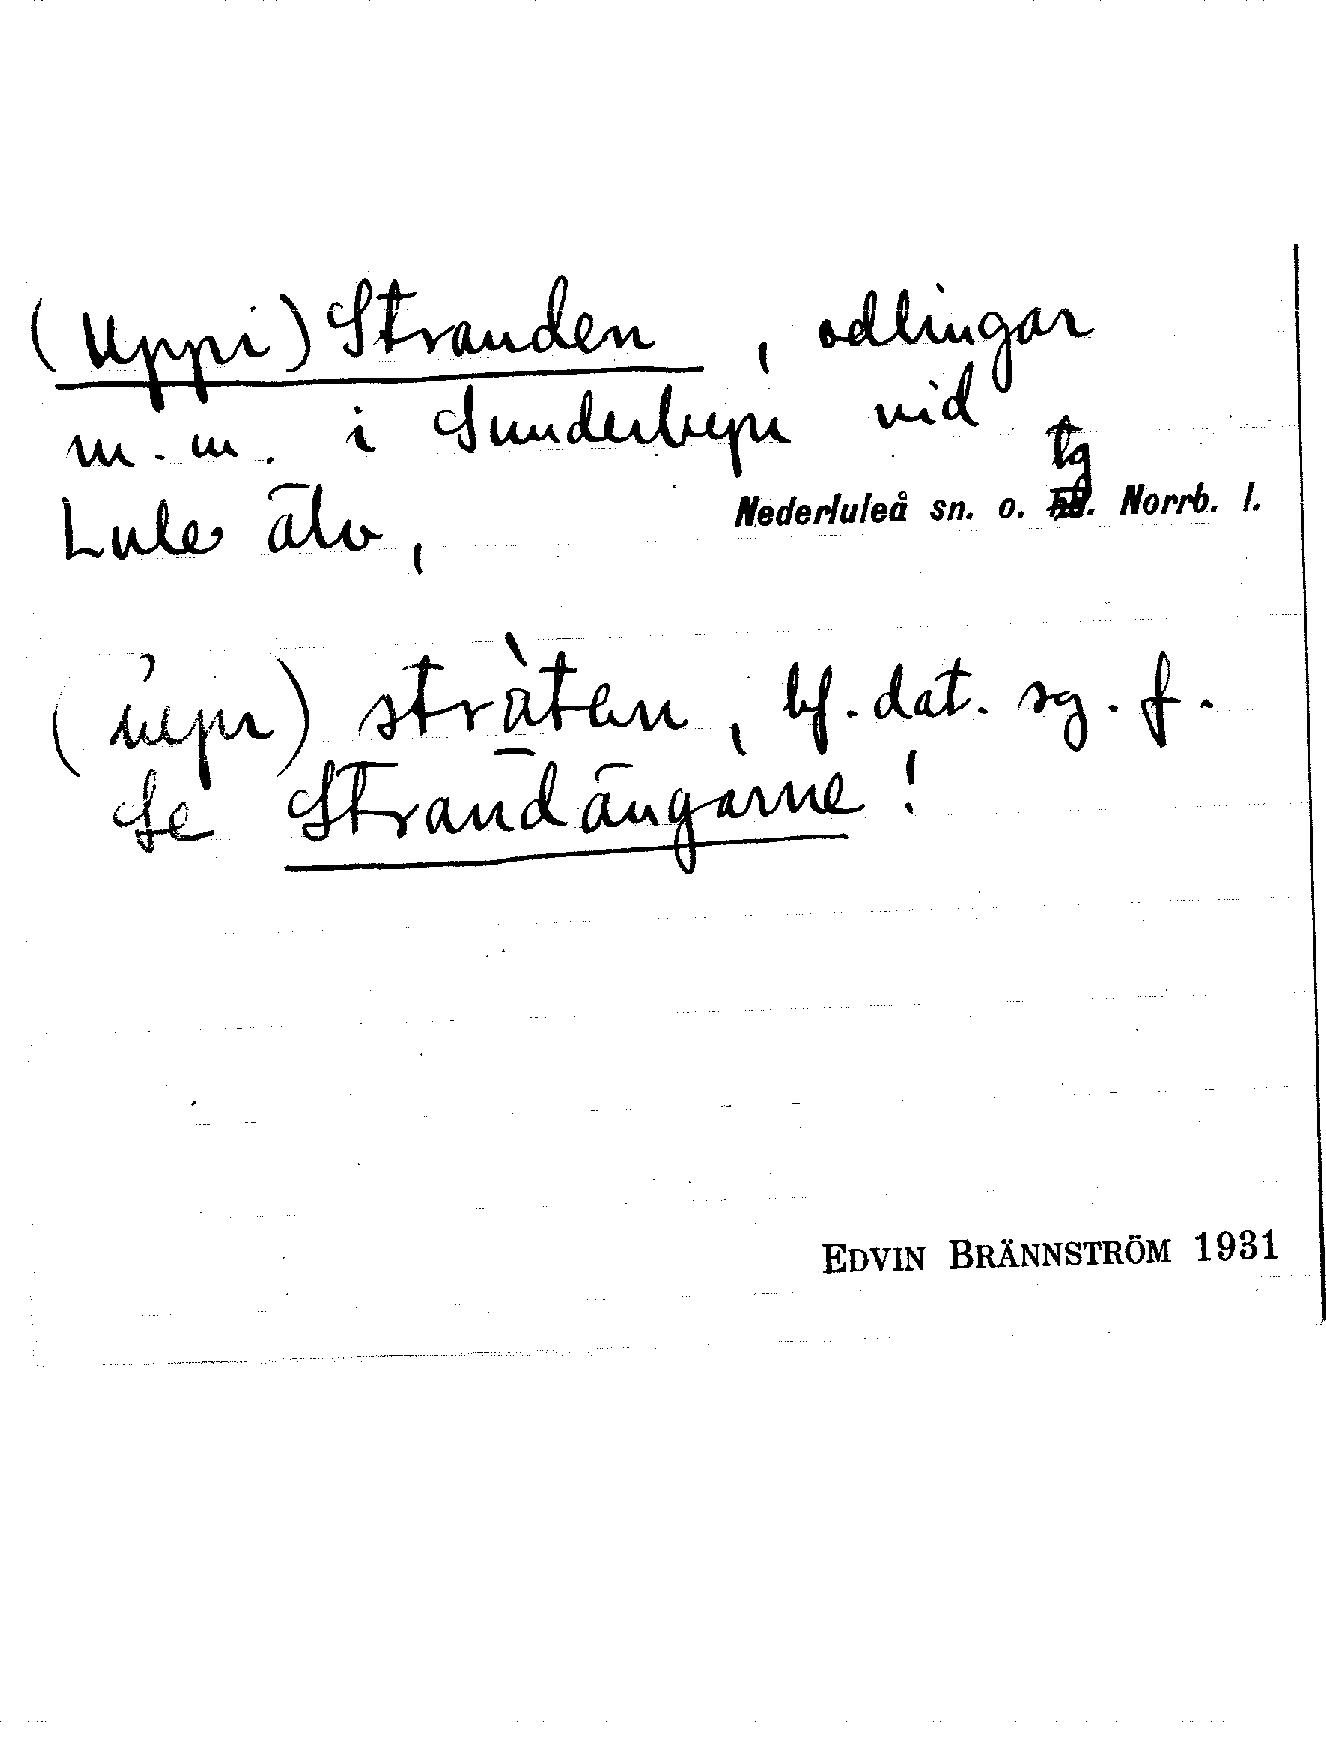 (Uppi) Stranden, odlingar
m.m. i Sunderbyn vid
Lule älv, Nederluleå sn. o. tg. Norrb. l.
stràten, bf. dat. sg. f.
Se Strandängarne!
EDVIN BRÄNNSTRÖM 1931